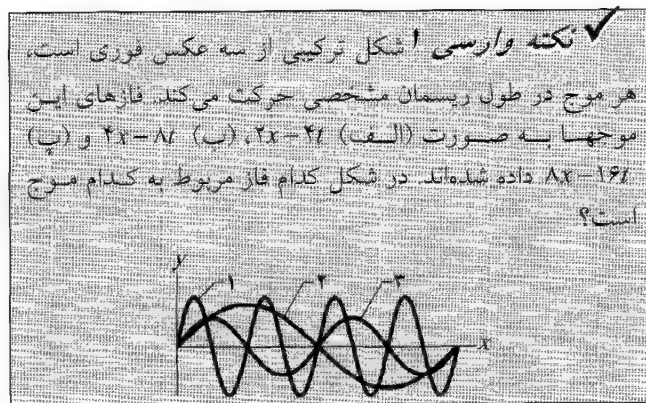 ✓ نکته وارسی ۱ شکل ترکیبی از سه عکس فوری است،
هر موج در طول ریسمان مشخصی حرکت می‌کند. فازهای این
موجها به صورت (الف) ۲x-۴t، (ب) ۴x-۸t و (پ)
۸x-۱۶t داده شده‌اند. در شکل کدام فاز مربوط به کدام موج
است؟
y
۱ ۲ ۳
x